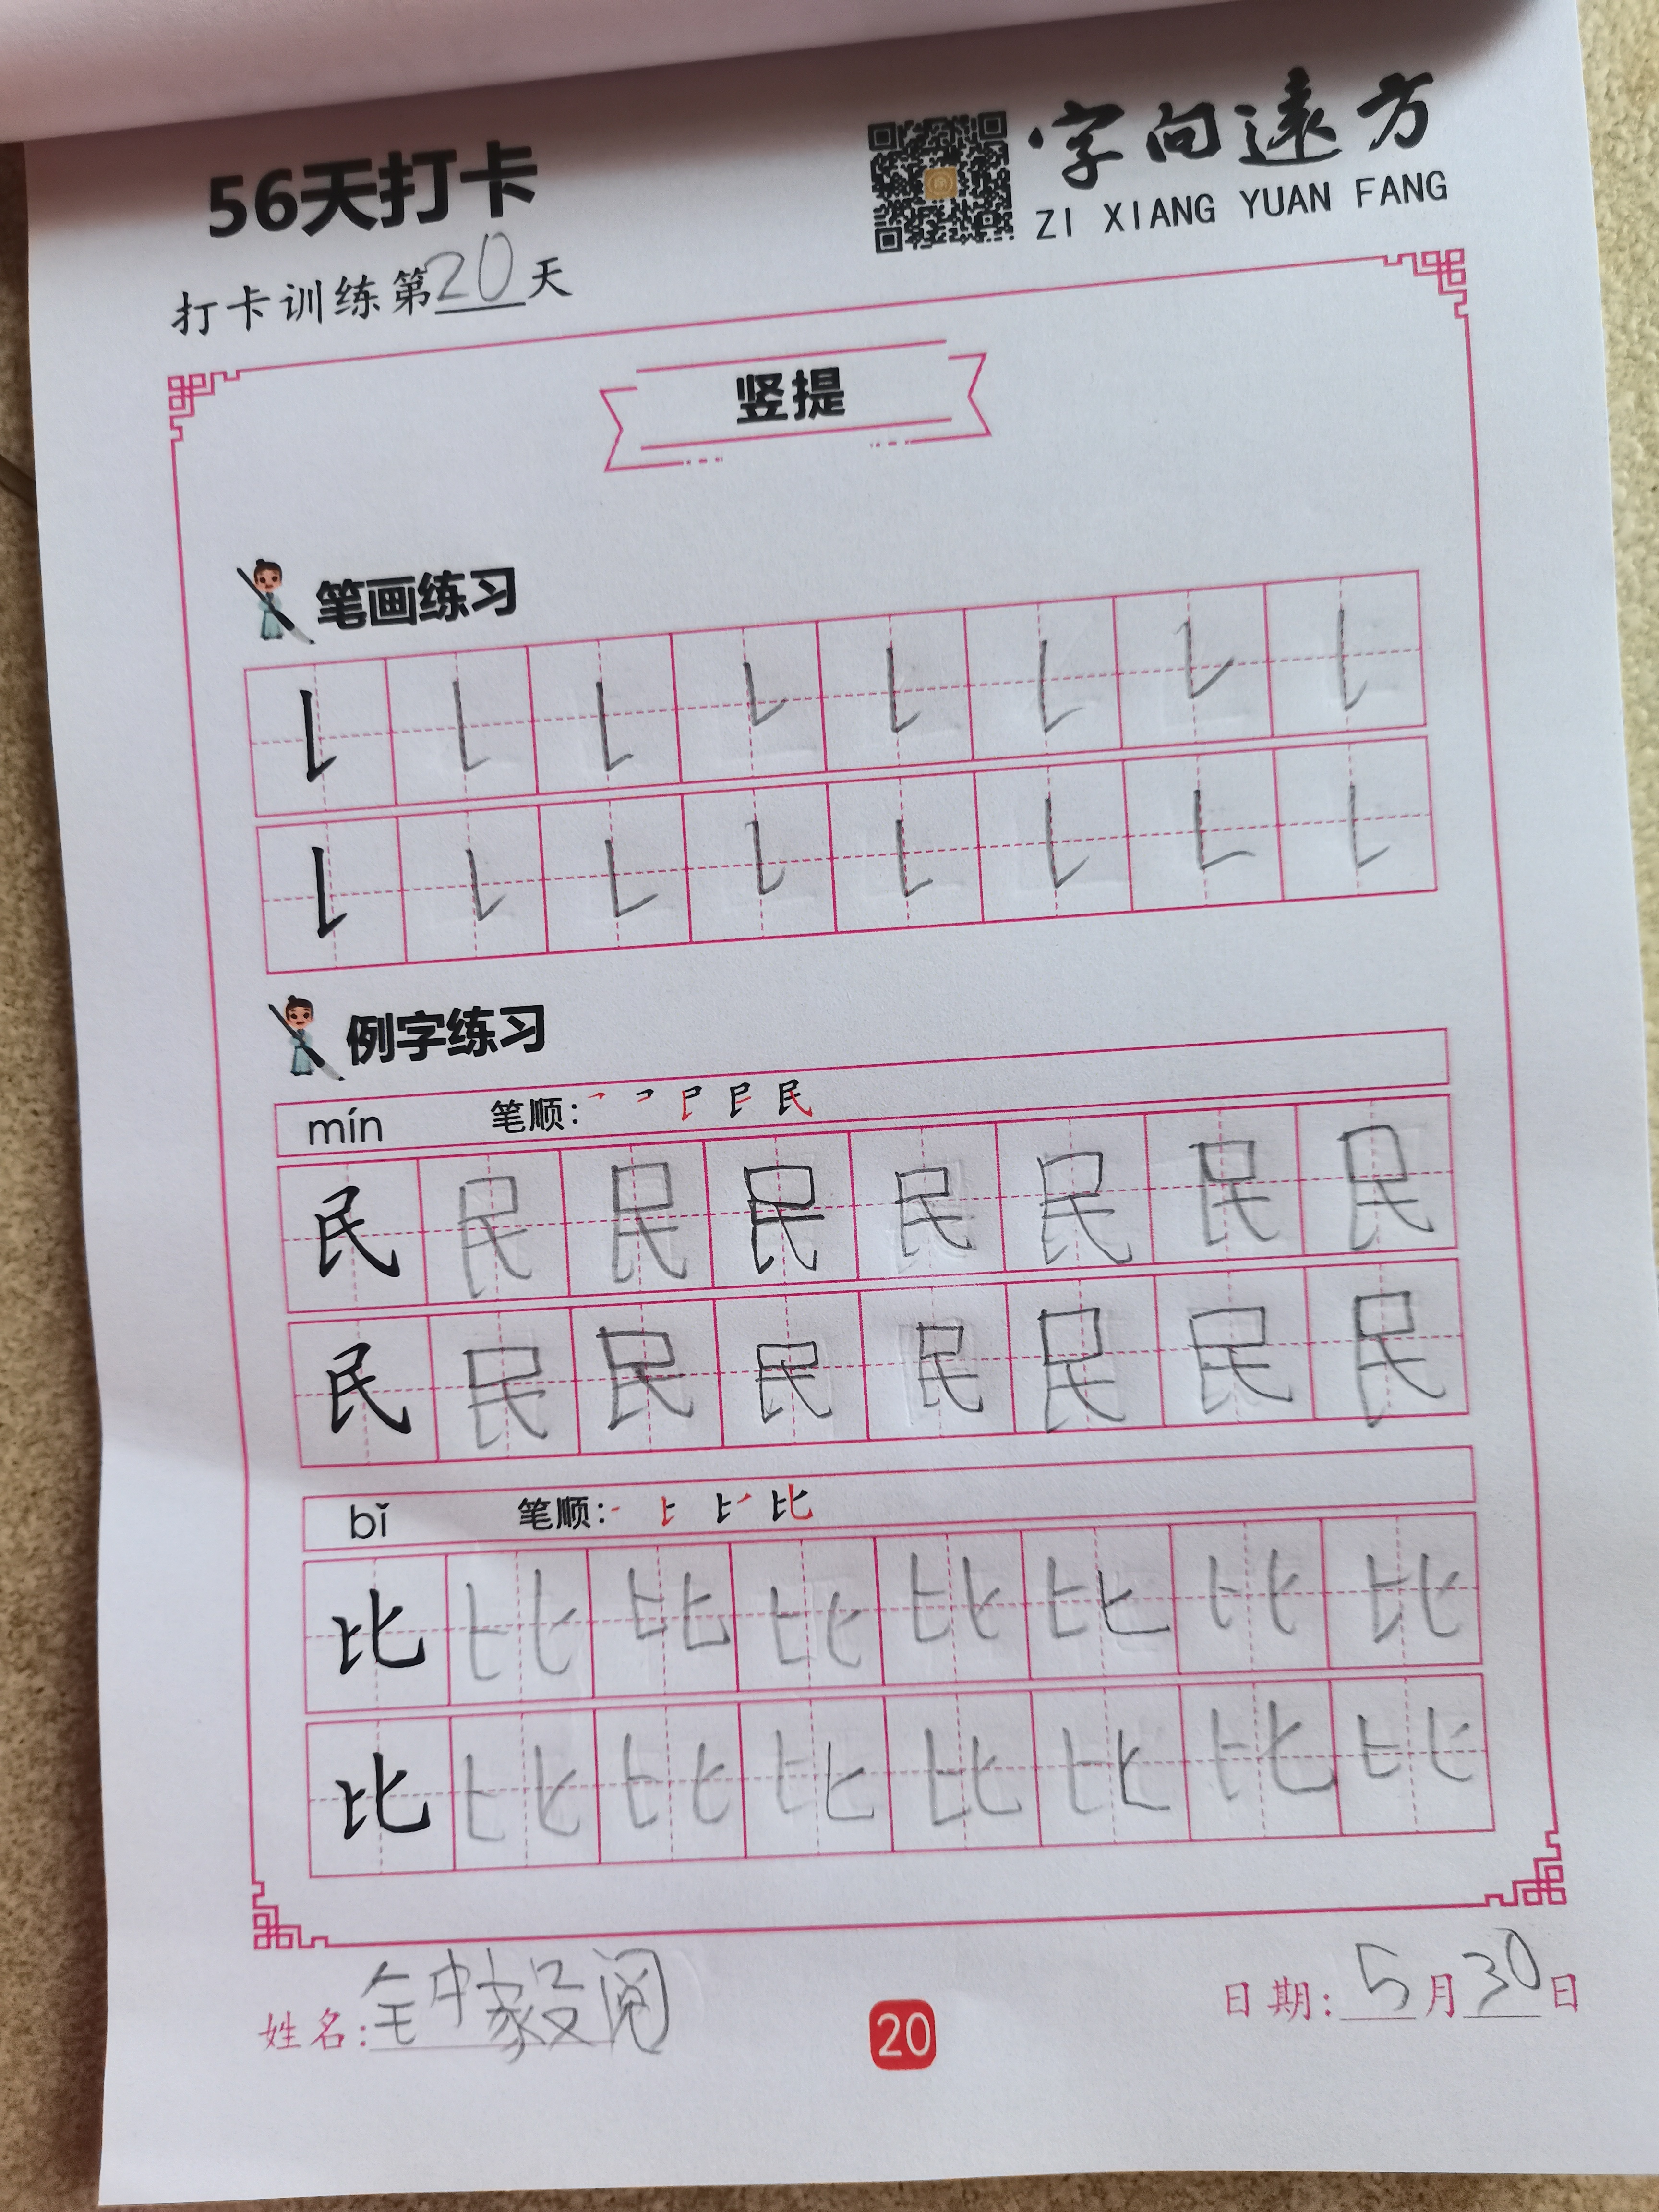 56天打卡
字向遠方
ZI XIANG YUAN FANG
打卡训练第20天
竖提
笔画练习
例字练习
mín 笔顺:
民 民 民 民 民 民 民 民
民 民 民 民 民 民 民 民
bǐ 笔顺: 比
比 比 比 比 比 比 比 比
比 比 比 比 比 比 比 比
姓名: 钟家毅阅
日期: 5月30日
20